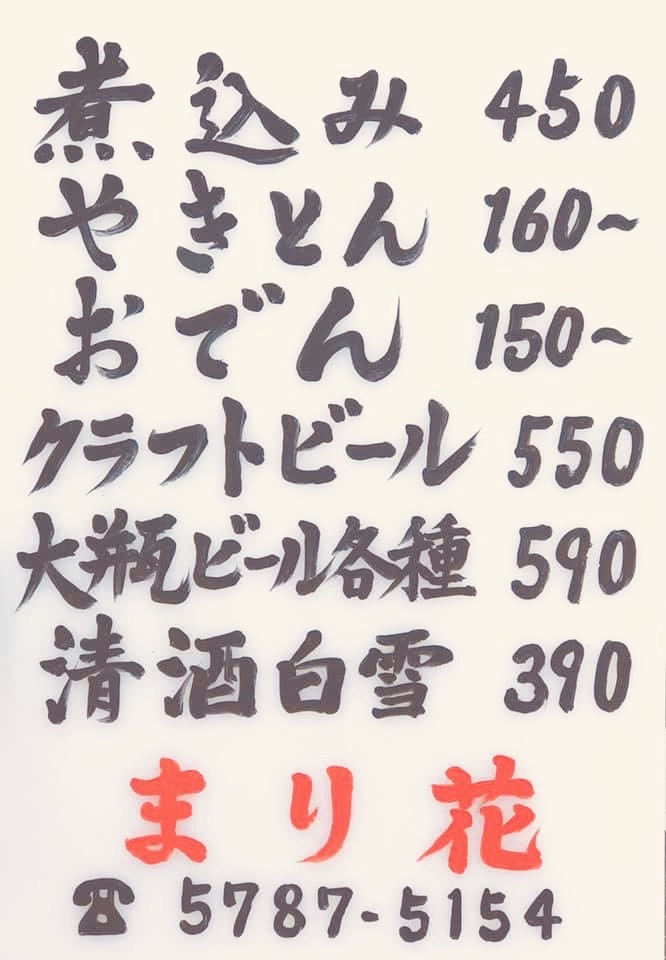 煮込み 450
やきとん 160~
おでん 150~
クラフトビール 550
大瓶ビール各種 590
清酒白雪 390
まり花
☎ 5787-5154